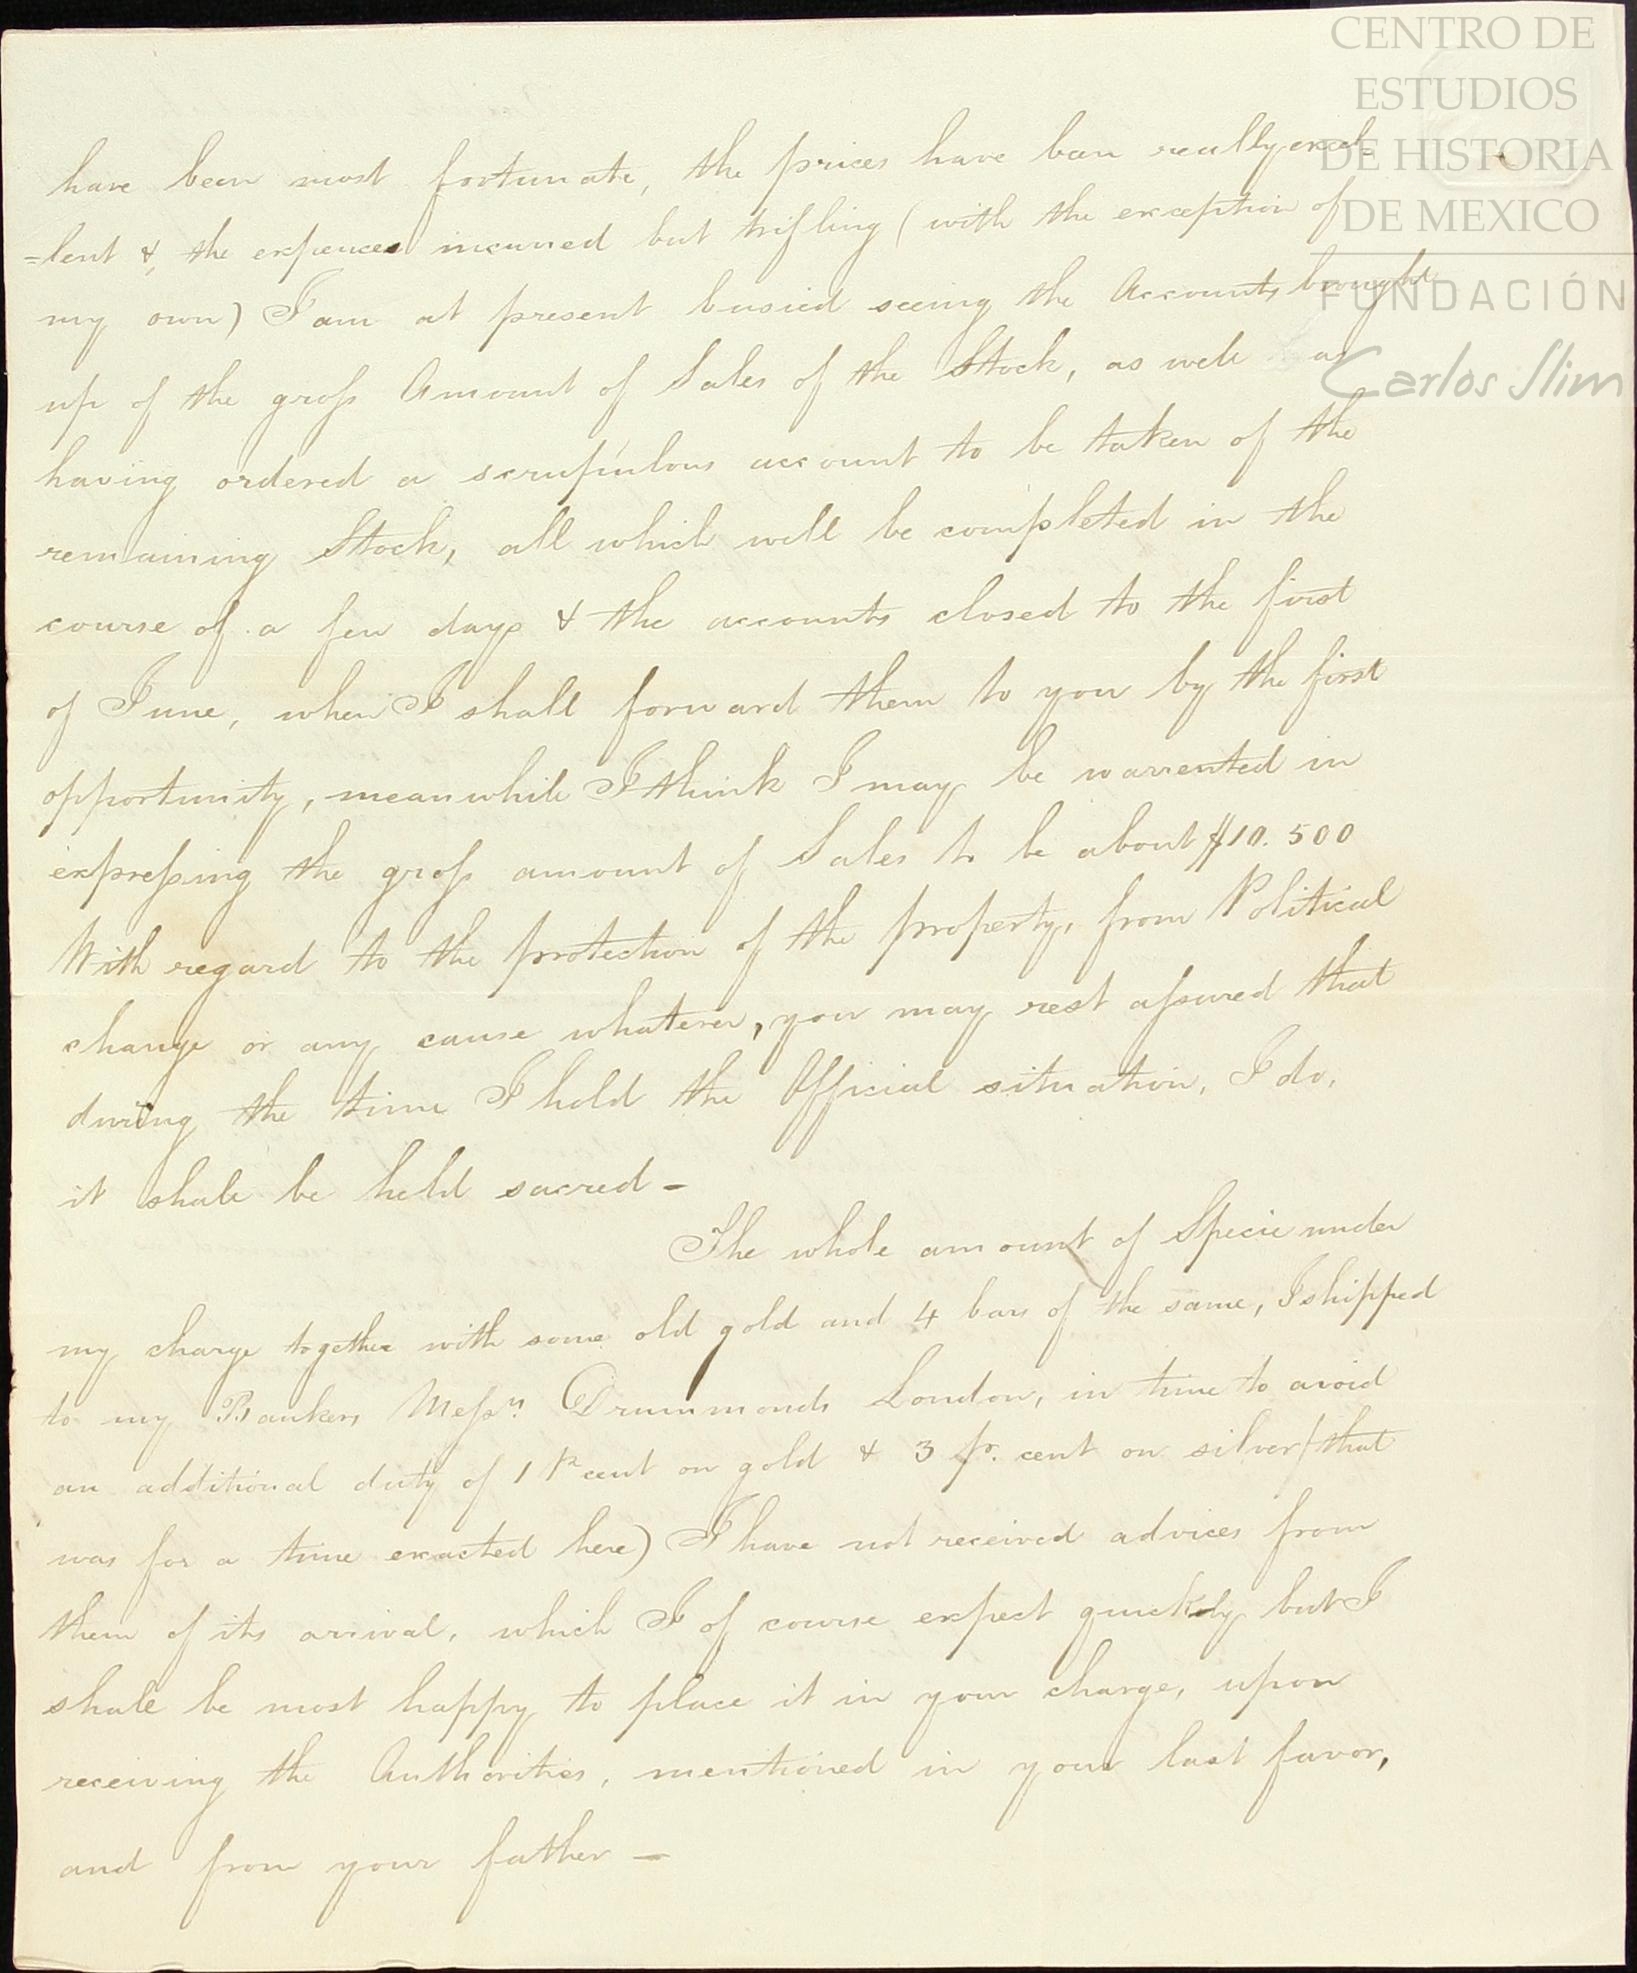 CENTRO DE
ESTUDIOS
DE HISTORIA
DE MEXICO
FUNDACIÓN
Carlos Slim
have been most fortunate, the prices have been really excel-
=lent & the expences incurred but trifling (with the exception of
my own) I am at present busied seeing the Accounts brought
up of the groſs Amount of Sales of the Stock, as well as
having ordered a scrupulous account to be taken of the
remaining Stock, all which will be completed in the
course of a few days & the accounts closed to the first
of June, when I shall forward them to you by the first
opportunity, meanwhile I think I may be warrented in
expreſsing the groſs amount of Sales to be about $10.500
With regard to the protection of the property, from Political
change or any cause whatever, you may rest aſsured that
during the time I hold the Official situation, I do,
it shall be held sacred –
The whole amount of Specie under
my charge together with some old gold and 4 bars of the same, I shipped
to my Bankers Meſsrs. Drummonds London, in time to avoid
an additional duty of 1 Pr cent on gold & 3 pr. cent on silver (that
was for a time exacted here) I have not received advices from
them of its arrival, which I of course expect quickly but I
shall be most happy to place it in your charge, upon
receiving the Authorities, mentioned in your last favor,
and from your father –